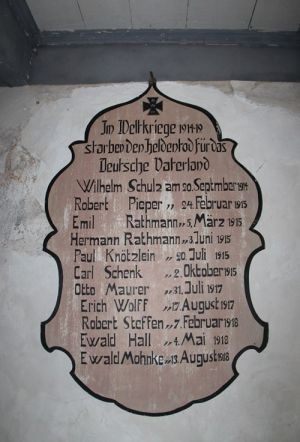 Im Weltkriege 1914-19
starben den Heldentod für das
Deutsche Vaterland
Wilhelm Schulz am 20. Septmber 1914
Robert Pieper „ 24. Februar 1915
Emil Rathmann „ 5. März 1915
Hermann Rathmann „ 3. Juni 1915
Paul Knötzlein „ 20. Juli 1915
Carl Schenk „ 2. Oktober 1915
Otto Maurer „ 31. Juli 1917
Erich Wolff „ 17. August 1917
Robert Steffen „ 7. Februar 1918
Ewald Hall „ 4. Mai 1918
Ewald Mohnke „ 13. August 1918